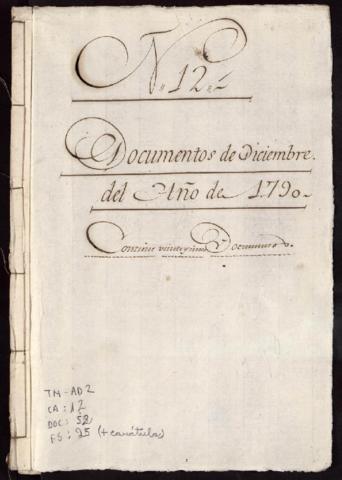 N. 12.
Documentos de Diciembre.
del Año de 1790.
Contiene veinte y cinco Documentos.
TM-AD2
CA: 12
DOC: 52
FS: 25 (+ carátulas)